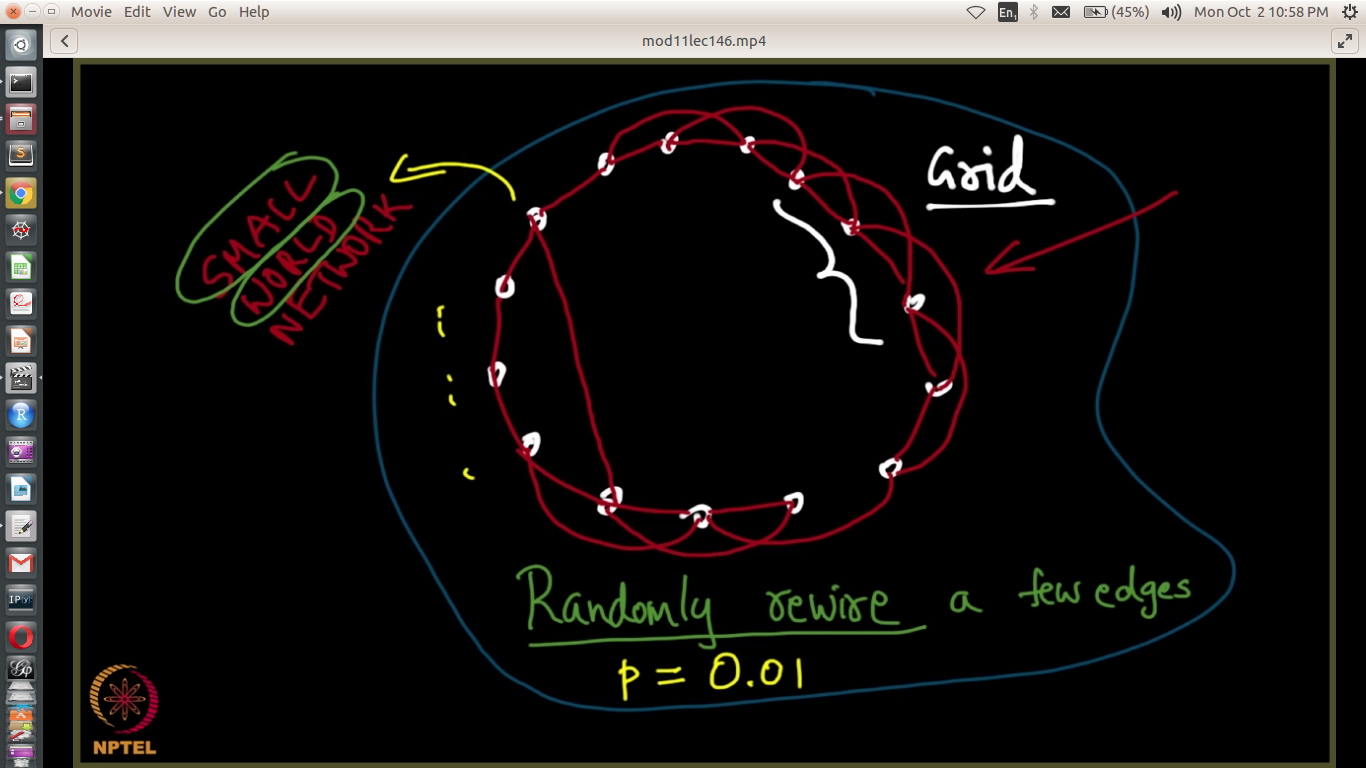 Movie Edit View Go Help
En1 (45%) Mon Oct 2 10:58 PM
mod11lec146.mp4
Grid
SMALL
WORLD
NETWORK
Randomly rewire a few edges
p = 0.01
NPTEL